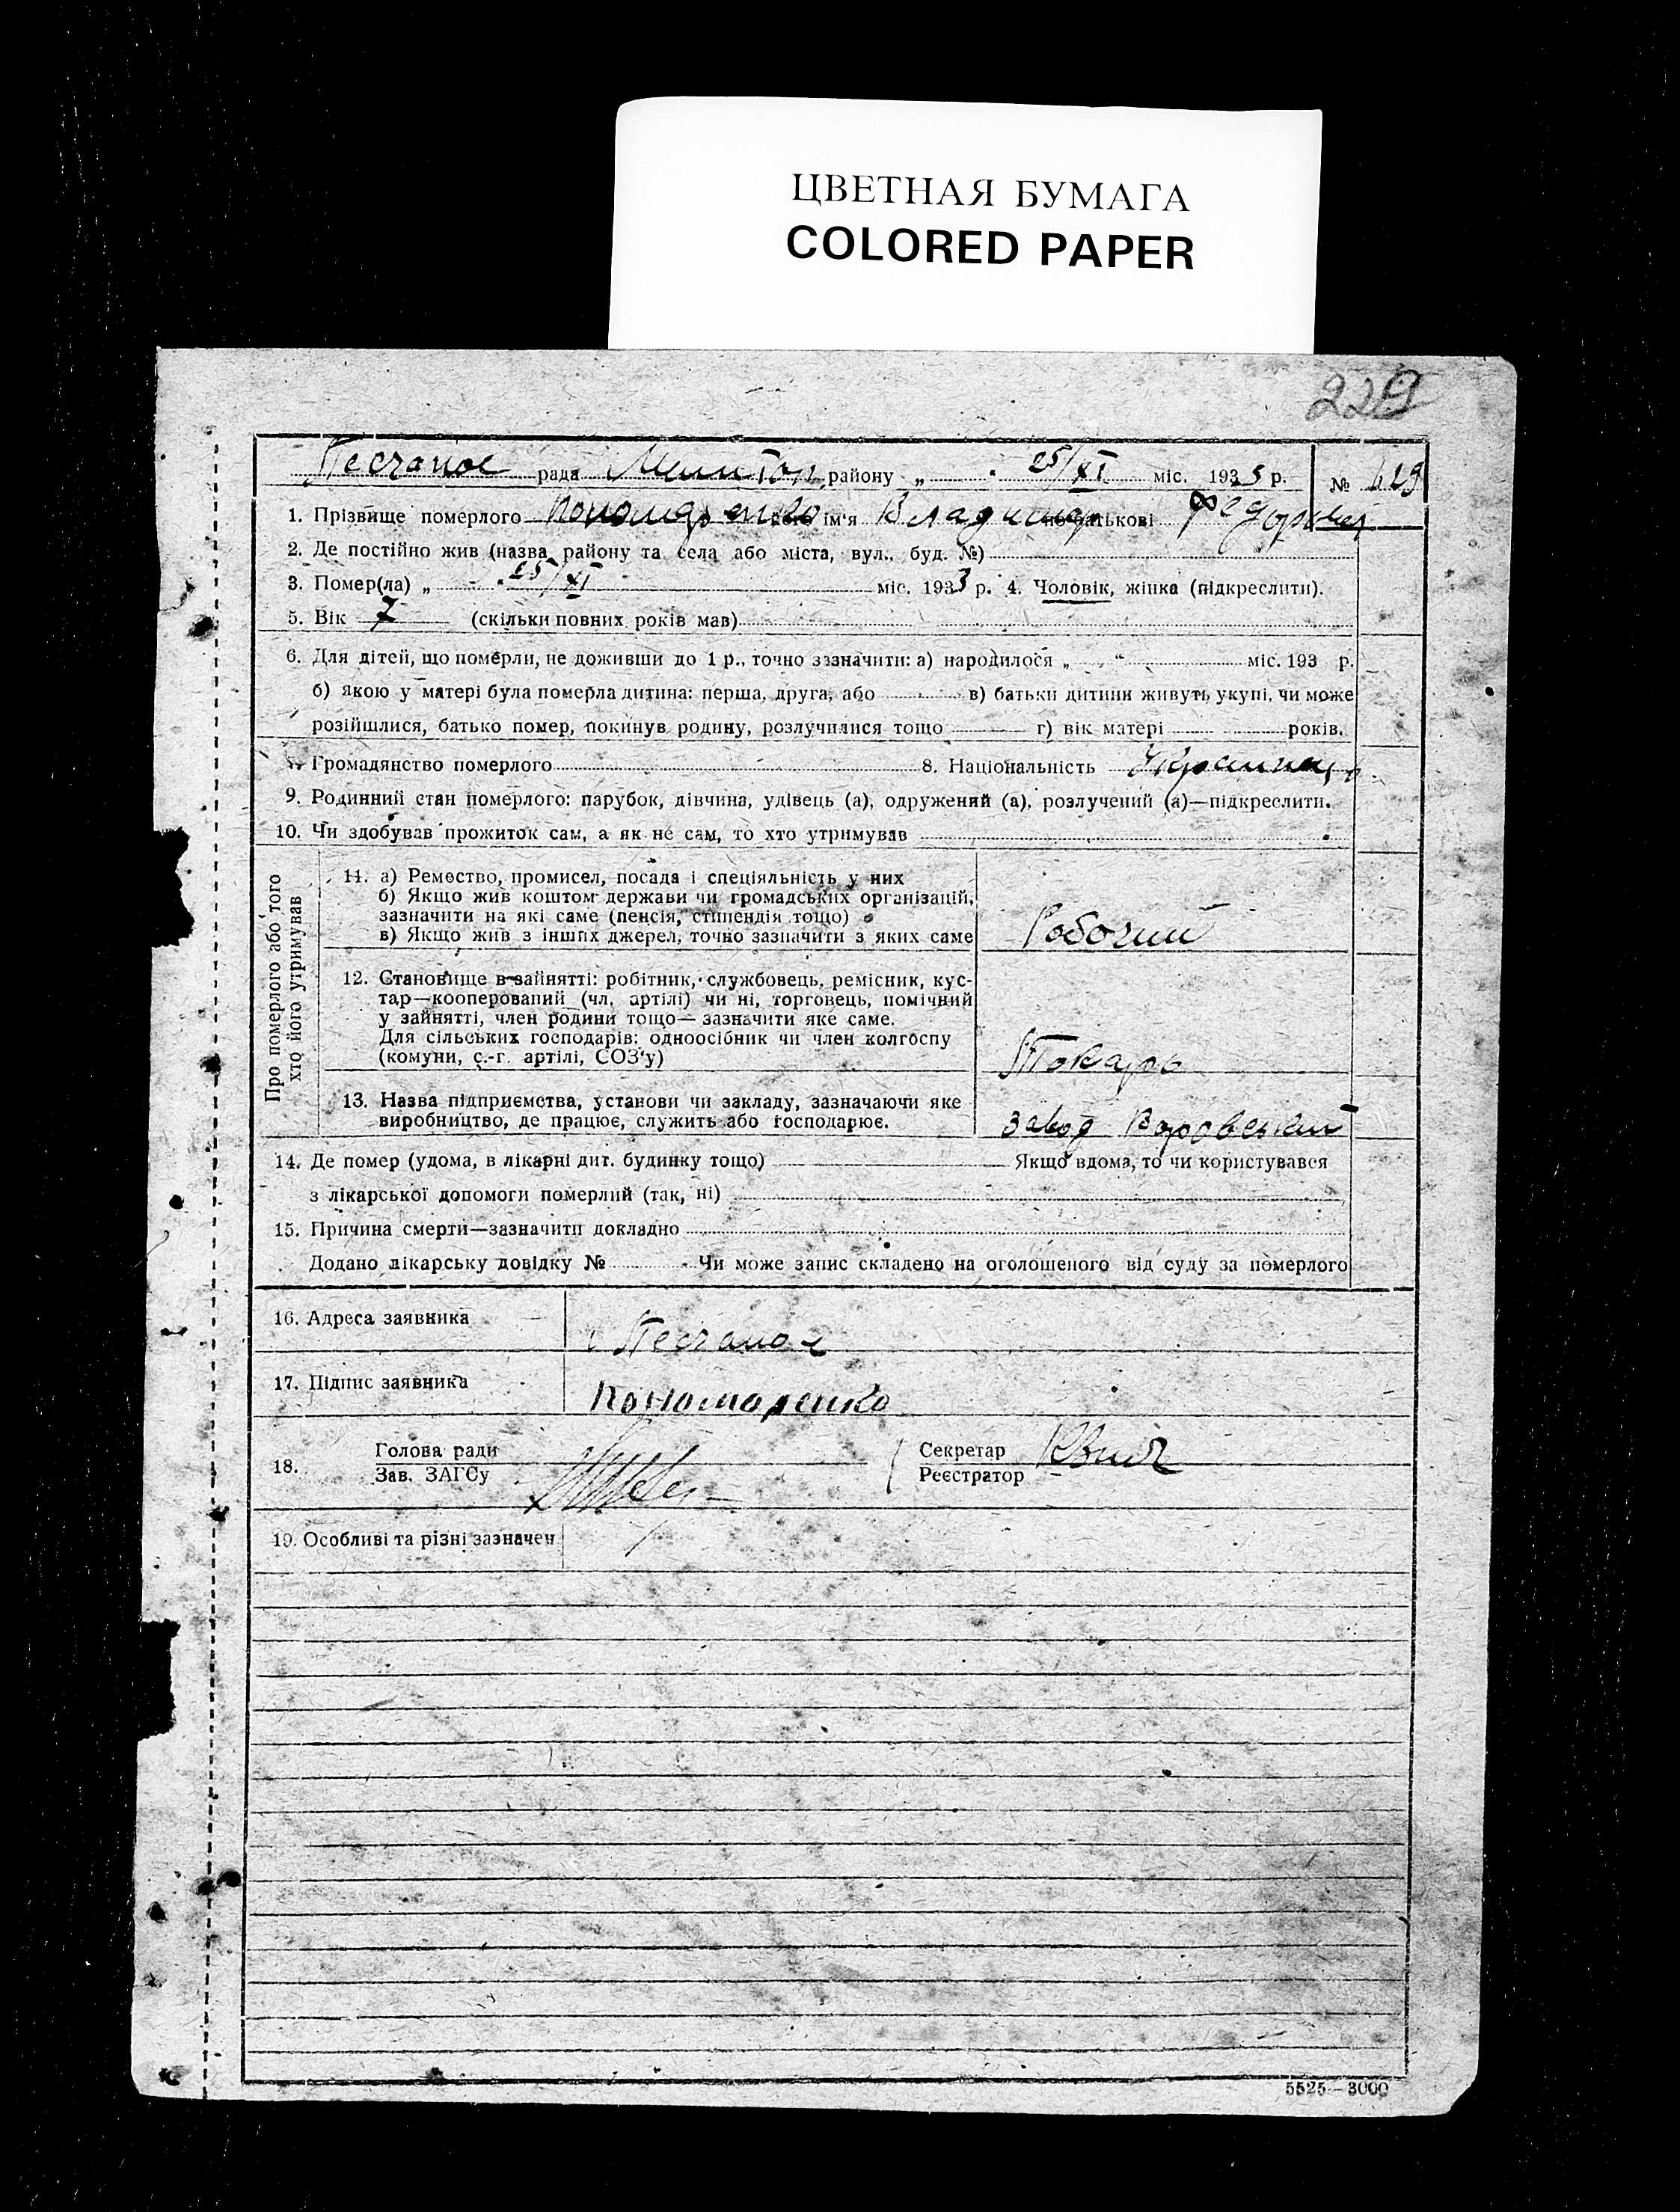 ЦВЕТНАЯ БУМАГА
COLORED PAPER
229
Песчаное рада Мелитоп району „ " 25/XI міс. 1933 р. №
1. Прізвище померлого Пономаренко його ім'я Владимир по батькові Федорович
2. Де постійно жив (назва району та села або міста, вул., буд. №)
3. Помер(ла) „ " 25/XI міс. 1933 р. 4. Чоловік, жінка (підкреслити).
5. Вік 7 (скільки повних років мав)
6. Для дітей, що померли, не доживши до 1 р., точно зазначити: а) народилося „ “ міс. 193 р.
б) якою у матері була померла дитина: перша, друга, або в) батьки дитини живуть укупі, чи може
розійшлися, батько помер, покинув родину, розлучилися тощо г) вік матері років.
7. Громадянство померлого 8. Національність
9. Родинний стан померлого: парубок, дівчина, удівець (а), одружений (а), розлучений (а)—підкреслити.
10. Чи здобував прожиток сам, а як не сам, то хто утримував
Про померлого або того
хто його утримував
11. а) Ремество, промисел, посада і спеціяльність у них
б) Якщо жив коштом держави чи громадських організацій,
зазначити на які саме (пенсія, стипендія тощо)
в) Якщо жив з інших джерел, точно зазначити з яких саме
Робочий
12. Становище в зайнятті: робітник, службовець, ремісник, кус-
тар—кооперований (чл. артілі) чи ні, торговець, помічний
у зайнятті, член родини тощо— зазначити яке саме.
Для сільських господарів: одноосібник чи член колгоспу
(комуни, с.-г. артілі, СОЗ'у)
Токарь
13. Назва підприємства, установи чи закладу, зазначаючи яке
виробництво, де працює, служить або господарює.
Завод Воровский
14. Де помер (удома, в лікарні дит. будинку тощо) Якщо вдома, то чи користувався
з лікарської допомоги померлий (так, ні)
15. Причина смерти—зазначити докладно
Додано лікарську довідку № Чи може запис складено на оголошеного від суду за померлого
16. Адреса заявника Песчаное
17. Підпис заявника Пономаренко
18. Голова ради
Зав. ЗАГСу
Секретар
Реєстратор
19. Особливі та різні зазначен
5525—3000